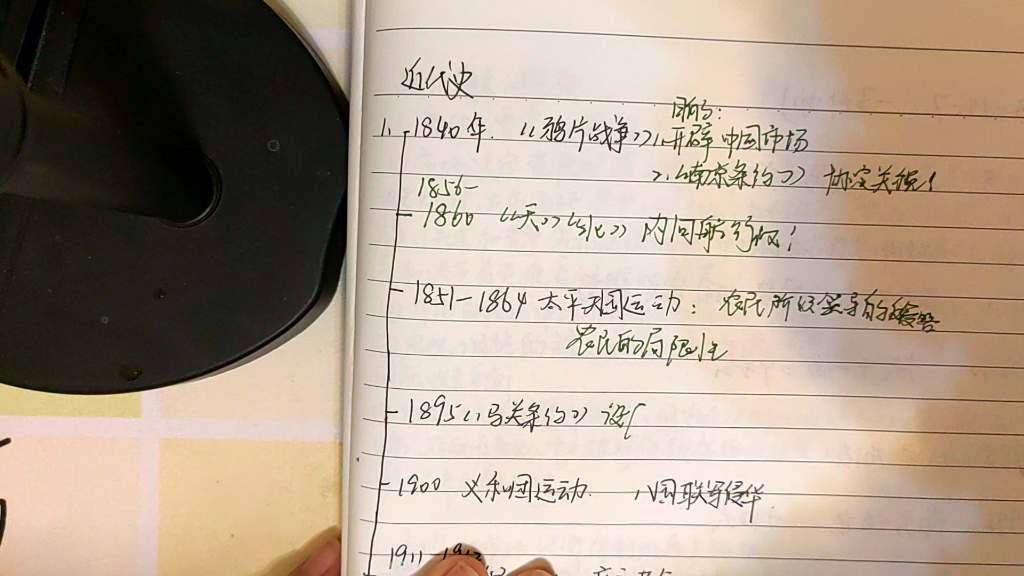 近代史
目的:
1. 1840年. 《鸦片战争》1.开辟中国市场
2.《南京条约》 协定关税!
1856-
1860 《天》《北》 内河航行权!
1851-1864 太平天国运动: 农民所
农民的局限性
1895《马关条约》设厂
1900 义和团运动. 八国联军侵华
1911-1912